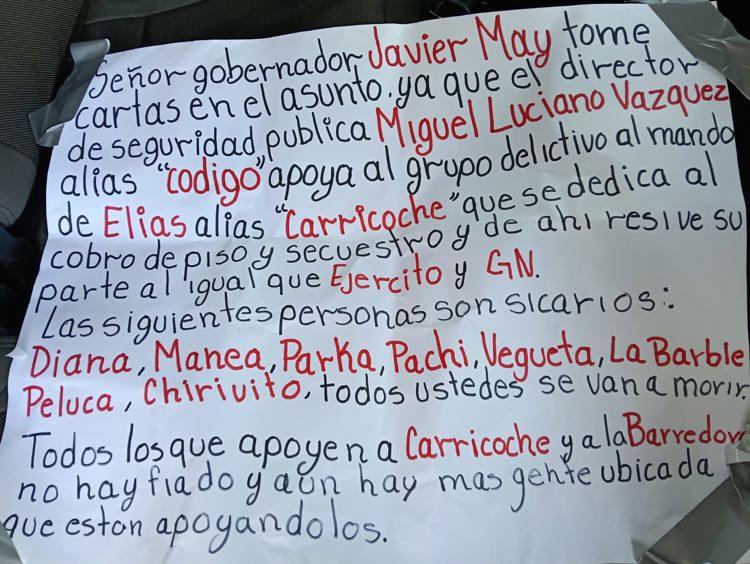 Señor gobernador Javier May tome
cartas en el asunto. ya que el director
de seguridad publica Miguel Luciano Vazquez
alias "codigo" apoya al grupo delictivo al mando
de Elias alias "Carricoche" que se dedica al
cobro de piso y secuestro y de ahi resive su
parte al igual que Ejercito y GN.
Las siguientes personas son sicarios:
Diana, Manea, Parka, Pachi, Vegueta, La Barbie
Peluca, Chirivito, todos ustedes se van a morir.
Todos los que apoyen a Carricoche y a la Barredora
no hay fiado y aún hay mas gente ubicada
que estan apoyandolos.